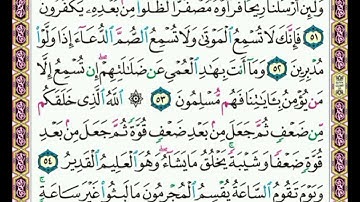 وَلَئِنْ أَرْسَلْنَا رِيحًا فَرَأَوْهُ مُصْفَرًّا لَّظَلُّوا۟ مِنۢ بَعْدِهِۦ يَكْفُرُونَ
٥١ فَإِنَّكَ لَا تُسْمِعُ ٱلْمَوْتَىٰ وَلَا تُسْمِعُ ٱلصُّمَّ ٱلدُّعَآءَ إِذَا وَلَّوْا۟
مُدْبِرِينَ ٥٢ وَمَآ أَنتَ بِهَـٰدِ ٱلْعُمْىِ عَن ضَلَـٰلَتِهِمْ إِن تُسْمِعُ إِلَّا
مَن يُؤْمِنُ بِـَٔايَـٰتِنَا فَهُم مُّسْلِمُونَ ٥٣ ۞ ٱللَّهُ ٱلَّذِى خَلَقَكُم
مِّن ضَعْفٍ ثُمَّ جَعَلَ مِنۢ بَعْدِ ضَعْفٍ قُوَّةً ثُمَّ جَعَلَ مِنۢ بَعْدِ
قُوَّةٍ ضَعْفًا وَشَيْبَةً يَخْلُقُ مَا يَشَآءُ وَهُوَ ٱلْعَلِيمُ ٱلْقَدِيرُ ٥٤
وَيَوْمَ تَقُومُ ٱلسَّاعَةُ يُقْسِمُ ٱلْمُجْرِمُونَ مَا لَبِثُوا۟ غَيْرَ سَاعَةٍ